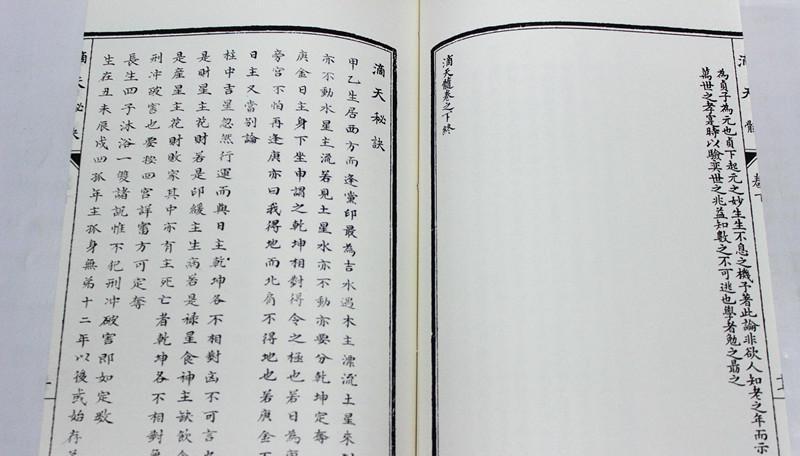 滴天髓
卷下
為貞子為元也貞下起元之妙生生不息之機予著此論非欲人知考之年而示
萬世之孝寔時以驗奕世之兆益知數之不可逃也學者勉之勗之
滴天髓卷之下終
滴天秘訣
甲乙生居西方而逢黨印最為吉水遇木主漂流土星來
亦不動水星主流若見土星水亦不動亦要分乾坤定奪
庚金日主身下坐申謂之乾坤相對得令之極也若日為
旁宮不怕再逢庚亦曰我得地而北肩不得地也若庚金
日主又當別論
柱中吉星忽然行運而與日主乾坤各不相對凶不可言
是財星主花財若是印緩主生病若是祿星食神主缺飲
是産星主花財敗家其中亦有主死亡者乾坤各不相對
刑沖破害也要按四宮詳富方可定奪
長生四子沐浴一雙諸説惟不犯刑沖破害即如定數
生在丑未辰戌四孤年主孤身無弟十二年以後或始存
滴天秘訣